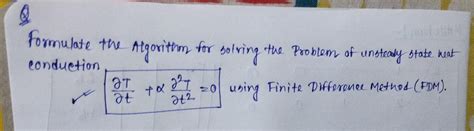 Q
Formulate the Algorithm for solving the Problem of unsteady state heat
conduction
∂T/∂t + α ∂²T/∂t² = 0 using Finite Difference Method (FDM).